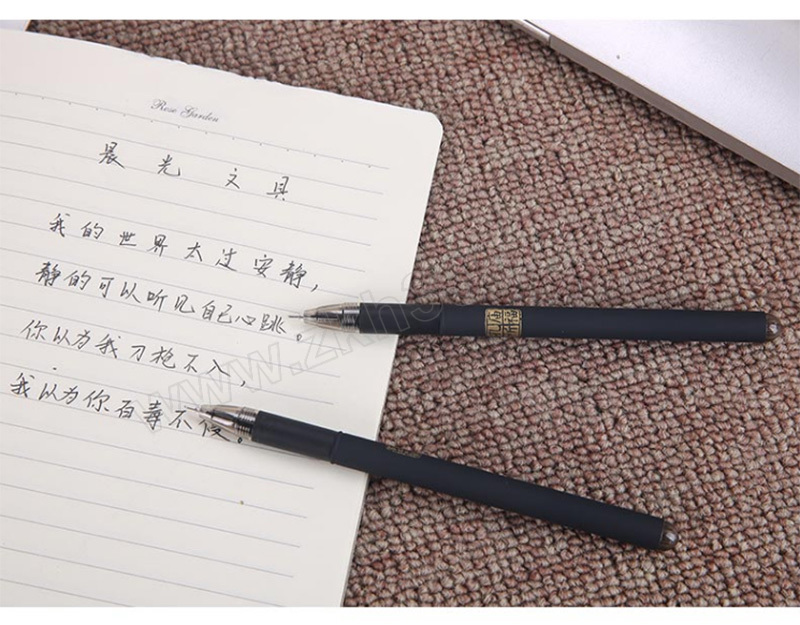 Rose Garden
晨光 文具
我的世界太过安静，
静的可以听见自己心跳。
你以为我刀枪不入，
我以为你百毒不侵。
孔庙祈福